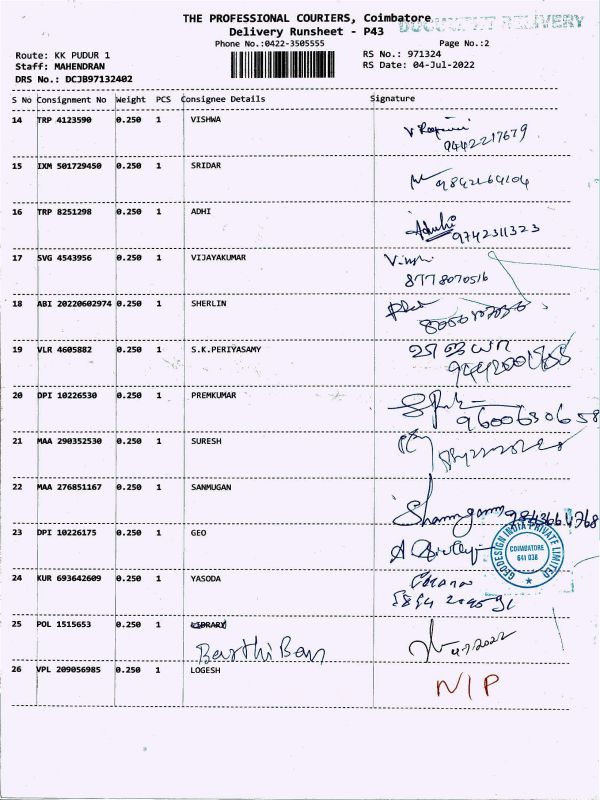 THE PROFESSIONAL COURIERS, Coimbatore
DOCUMENT DELIVERY
Delivery Runsheet - P43
Phone No.:0422-3505555 Page No.:2
Route: KK PUDUR 1 RS No.: 971324
Staff: MAHENDRAN RS Date: 04-Jul-2022
DRS No.: DCJB97132402
S No Consignment No Weight PCS Consignee Details Signature
14 TRP 4123590 0.250 1 VISHWA
9442217679
15 IXM 501729450 0.250 1 SRIDAR
16 TRP 8251298 0.250 1 ADHI
9742311323
17 SVG 4543956 0.250 1 VIJAYAKUMAR
8778070516
18 ABI 20220602974 0.250 1 SHERLIN
19 VLR 4605882 0.250 1 S.K.PERIYASAMY
20 DPI 10226530 0.250 1 PREMKUMAR
9600630658
21 MAA 290352530 0.250 1 SURESH
22 MAA 276851167 0.250 1 SANMUGAN
Shanmugam
23 DPI 10226175 0.250 1 GEO
GEODESIGN INDIA PRIVATE LIMITED
COIMBATORE
641 038
24 KUR 693642609 0.250 1 YASODA
25 POL 1515653 0.250 1 LIBRARY
4-7-2022
26 VPL 209056985 0.250 1 LOGESH
N/P